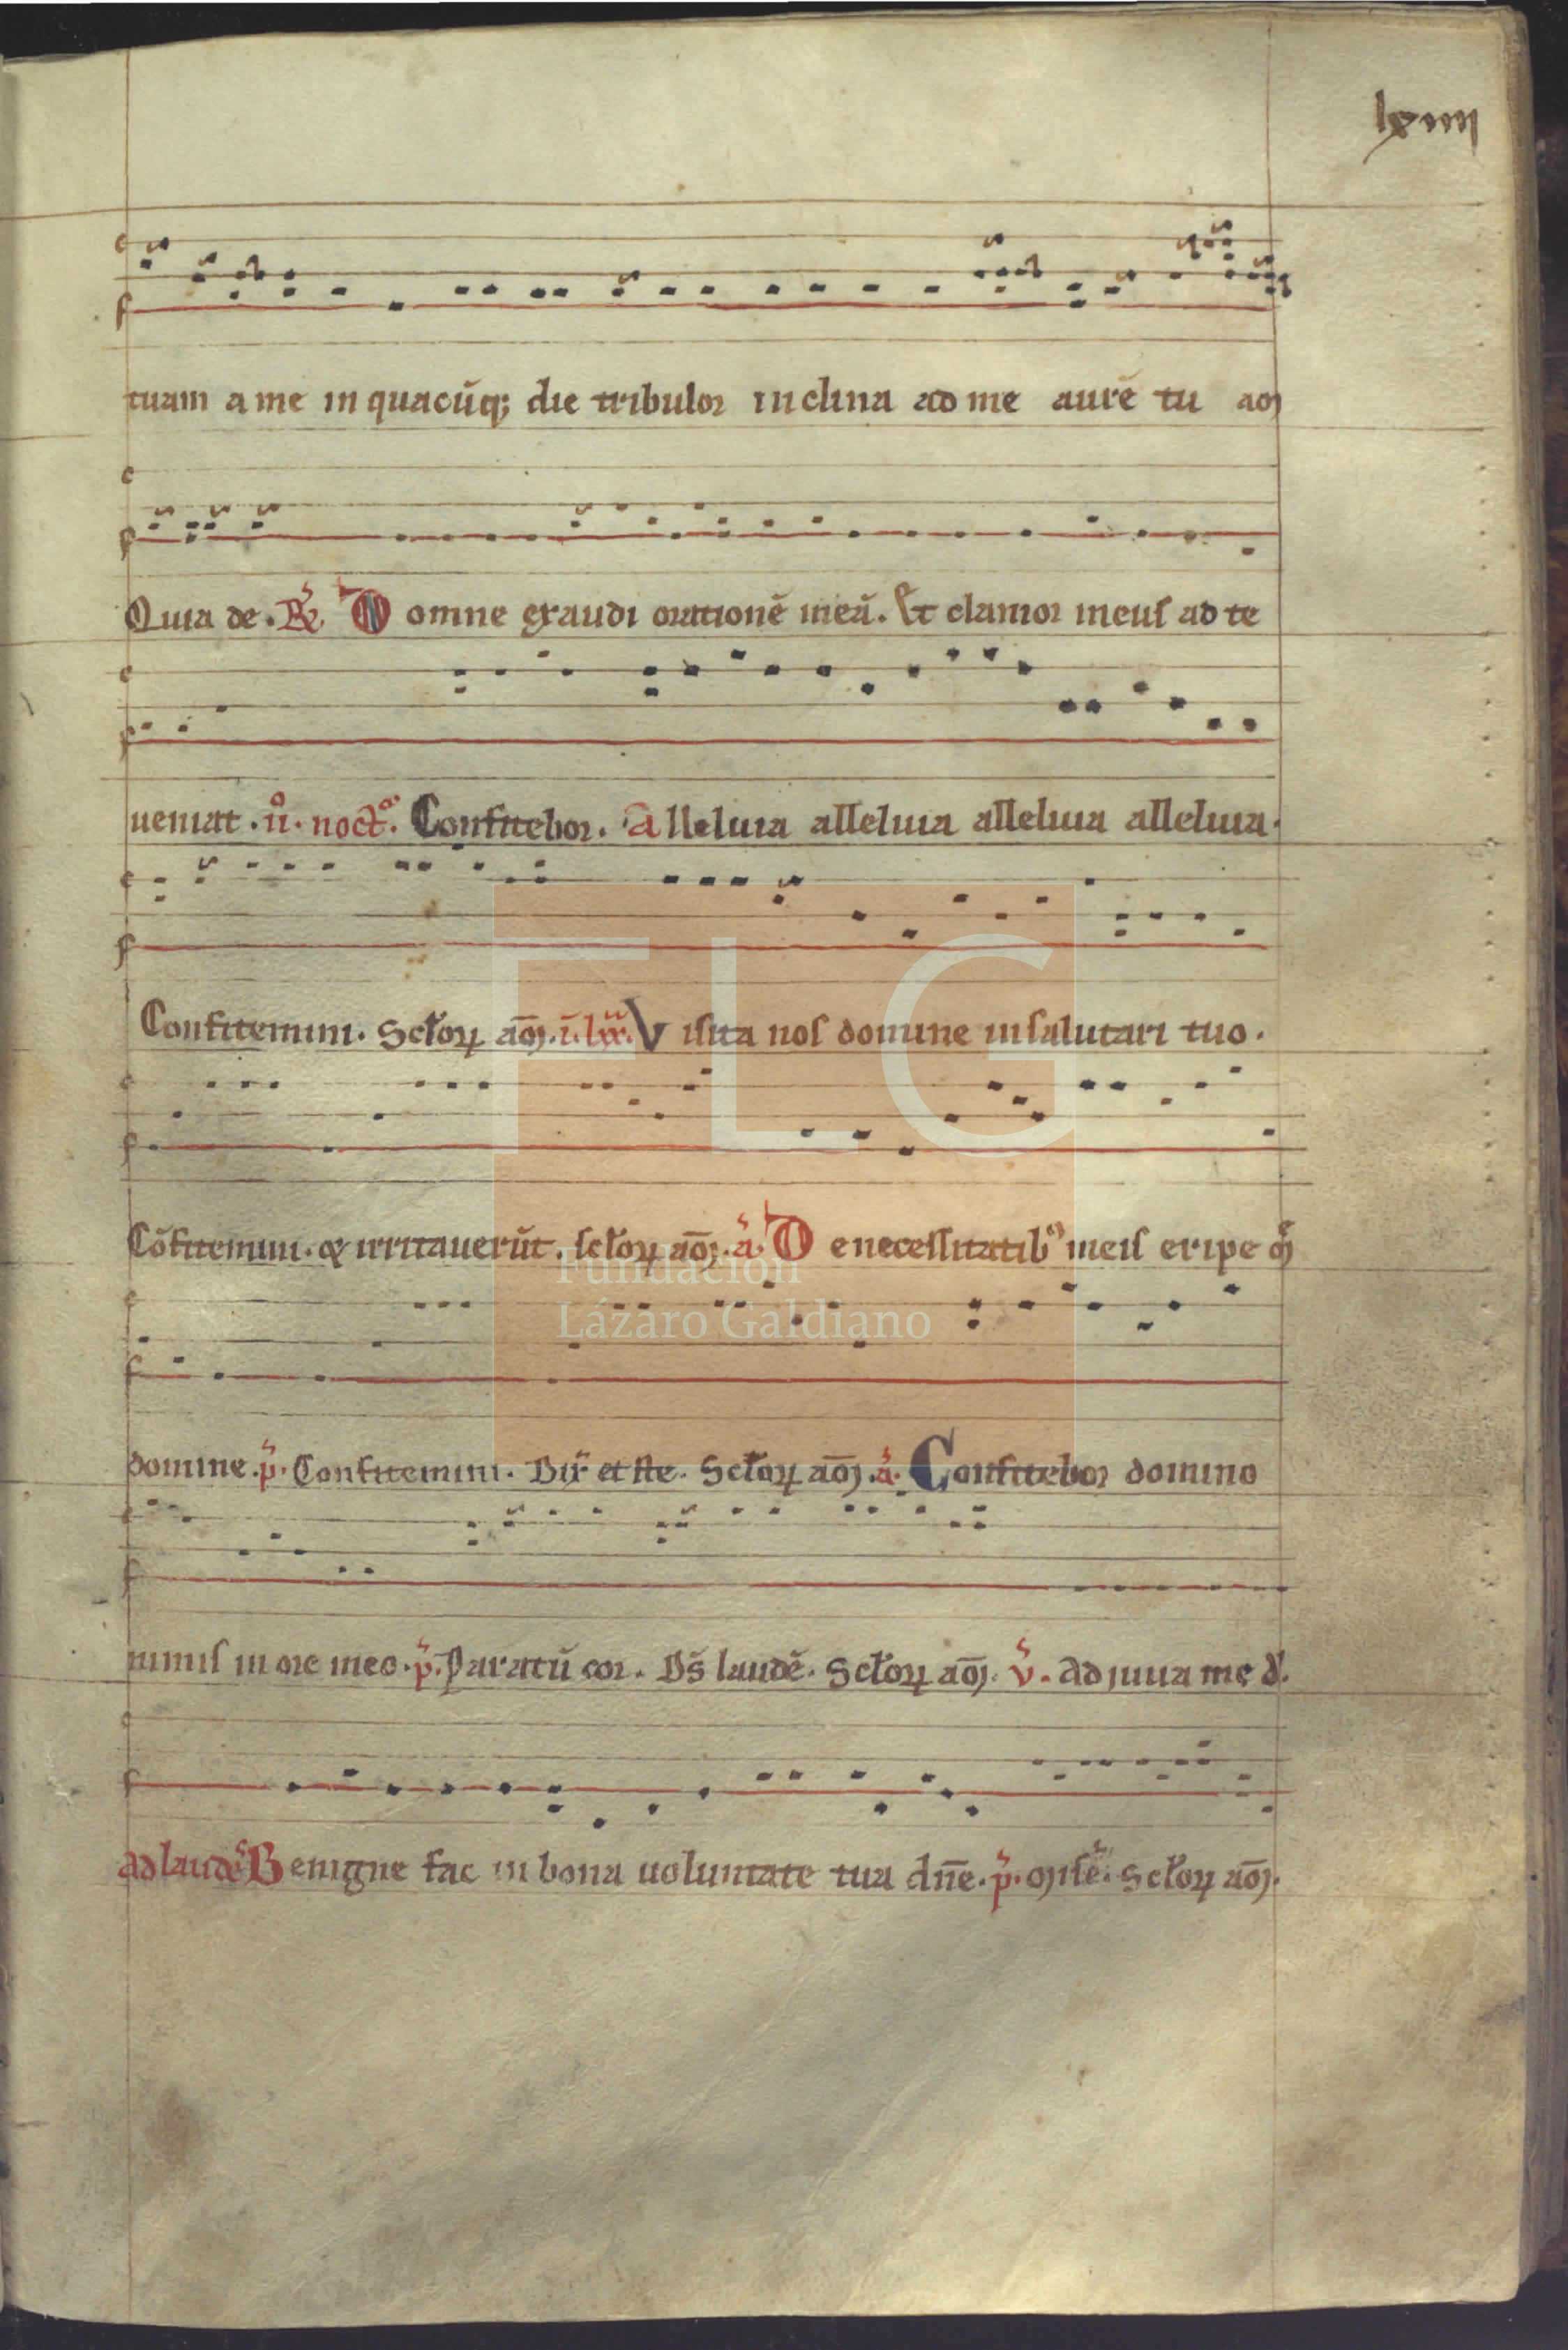 lxiiii
tuam a me in quacũq; die tribulor inclina ad me aurẽ tu aɜ
Quia de. R̃. Domine exaudi orationẽ meã. Et clamor meus ad te
ueniat. ii.º noct.ª Confitebor. Alleluia alleluia alleluia alleluia.
Confitemini. Sctoꝝ aõꝫ. Visita nos domine insalutari tuo.
Cõfitemini. & irritauerũt. sctoꝝ aõꝫ. a. De necessitatib' meis eripe
domine. p. Confitemini. et ste. Sctoꝝ aõꝫ. a. Confitebor domino
nimis in ore meo. p. Paratũ cor. Ds̃ laudẽ. Sctoꝝ aõꝫ. v. Adiuua me d'.
Ad laudes Benigne fac in bona uoluntate tua dñe. p. Sctoꝝ aõꝫ.
FLG
Fundación
Lázaro Galdiano